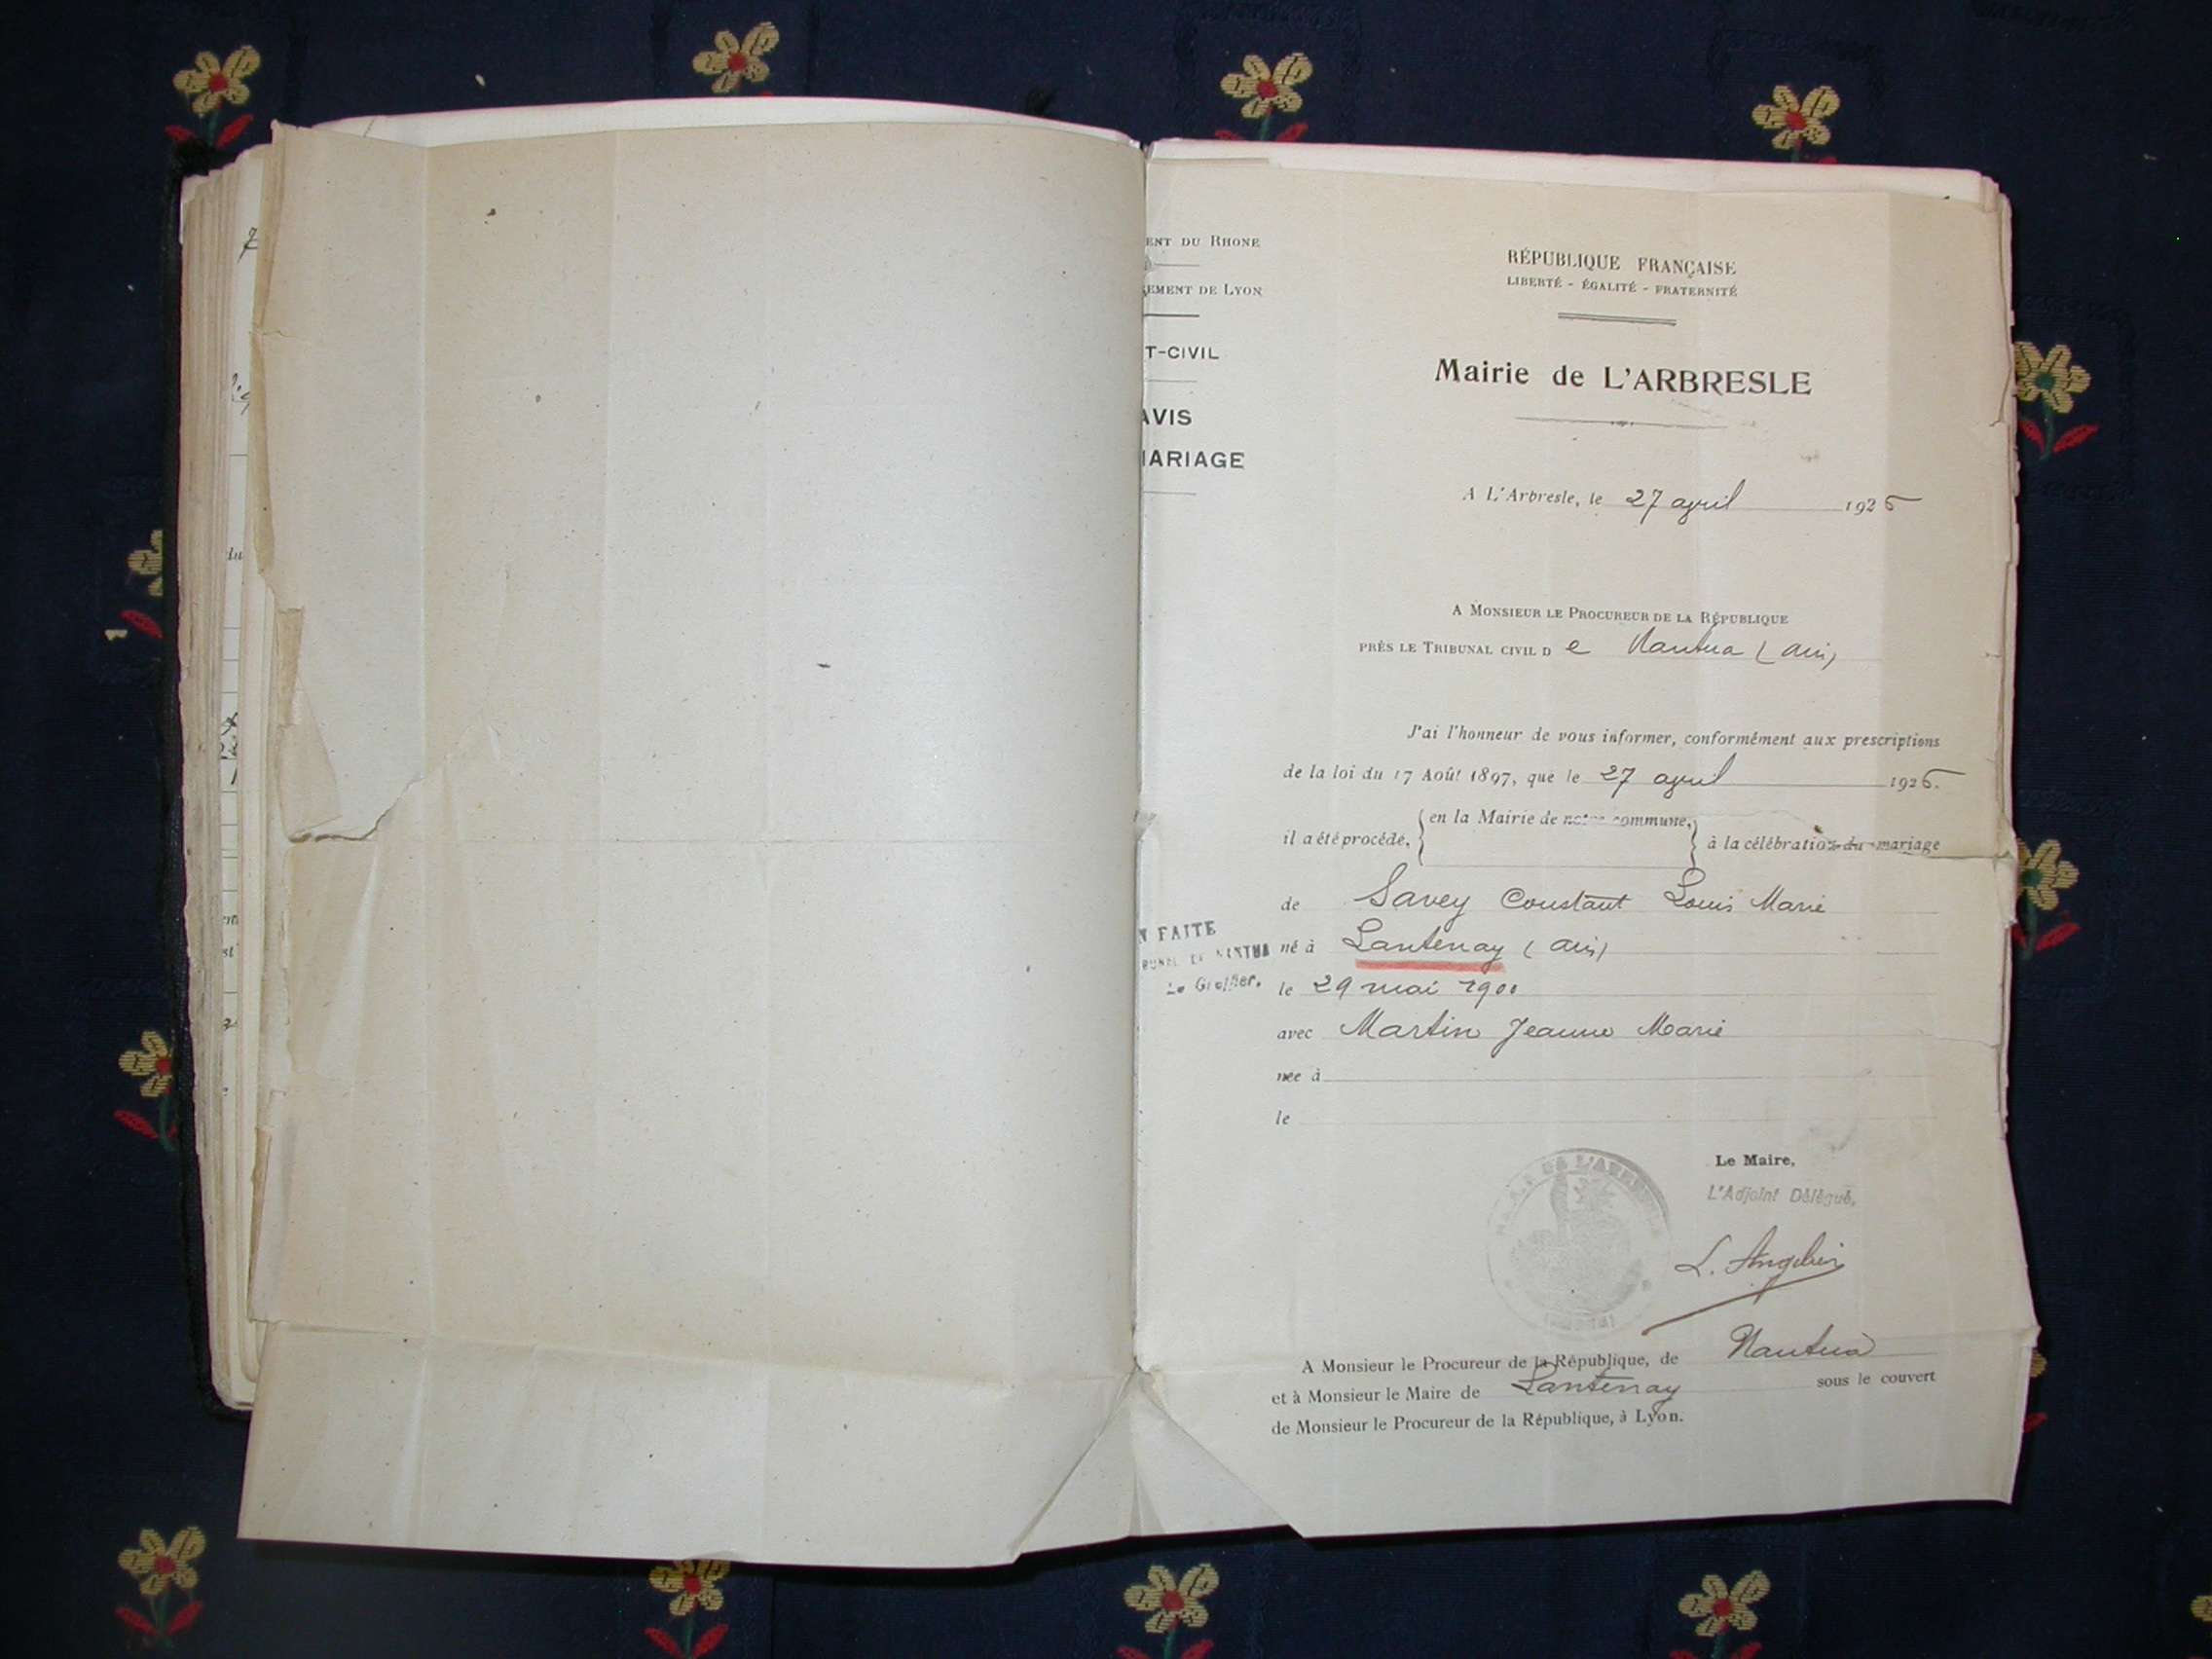 ENT DU RHONE
EMENT DE LYON
T-CIVIL
AVIS
MARIAGE
RÉPUBLIQUE FRANÇAISE
LIBERTÉ - ÉGALITÉ - FRATERNITÉ
Mairie de L'ARBRESLE
A L'Arbresle, le 27 april 1926
A MONSIEUR LE PROCUREUR DE LA RÉPUBLIQUE
PRÈS LE TRIBUNAL CIVIL D e Nantua (ain)
J'ai l'honneur de vous informer, conformément aux prescriptions
de la loi du 17 Août 1897, que le 27 april 1926.
en la Mairie de notre commune,
il a été procédé, à la célébration du mariage
de Savey Constant Louis Marie
né à Lantenay (ain)
le 29 mai 1900
avec Martin Jeanne Marie
née à
le
N FAITE
NANTUA
Le Greffier.
Le Maire,
L'Adjoint Délégué,
A Monsieur le Procureur de la République, de Nantua
et à Monsieur le Maire de Lantenay sous le couvert
de Monsieur le Procureur de la République, à Lyon.